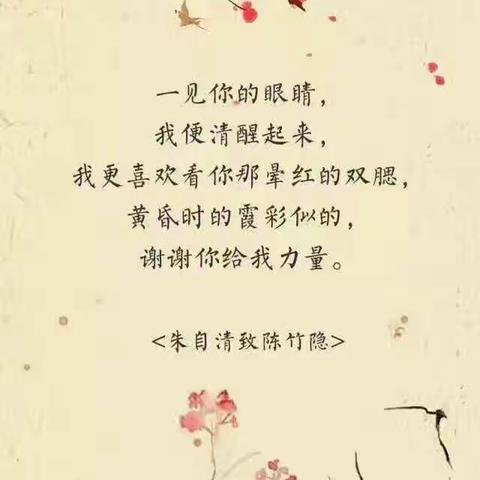 一见你的眼睛，
我便清醒起来，
我更喜欢看你那晕红的双腮，
黄昏时的霞彩似的，
谢谢你给我力量。
<朱自清致陈竹隐>